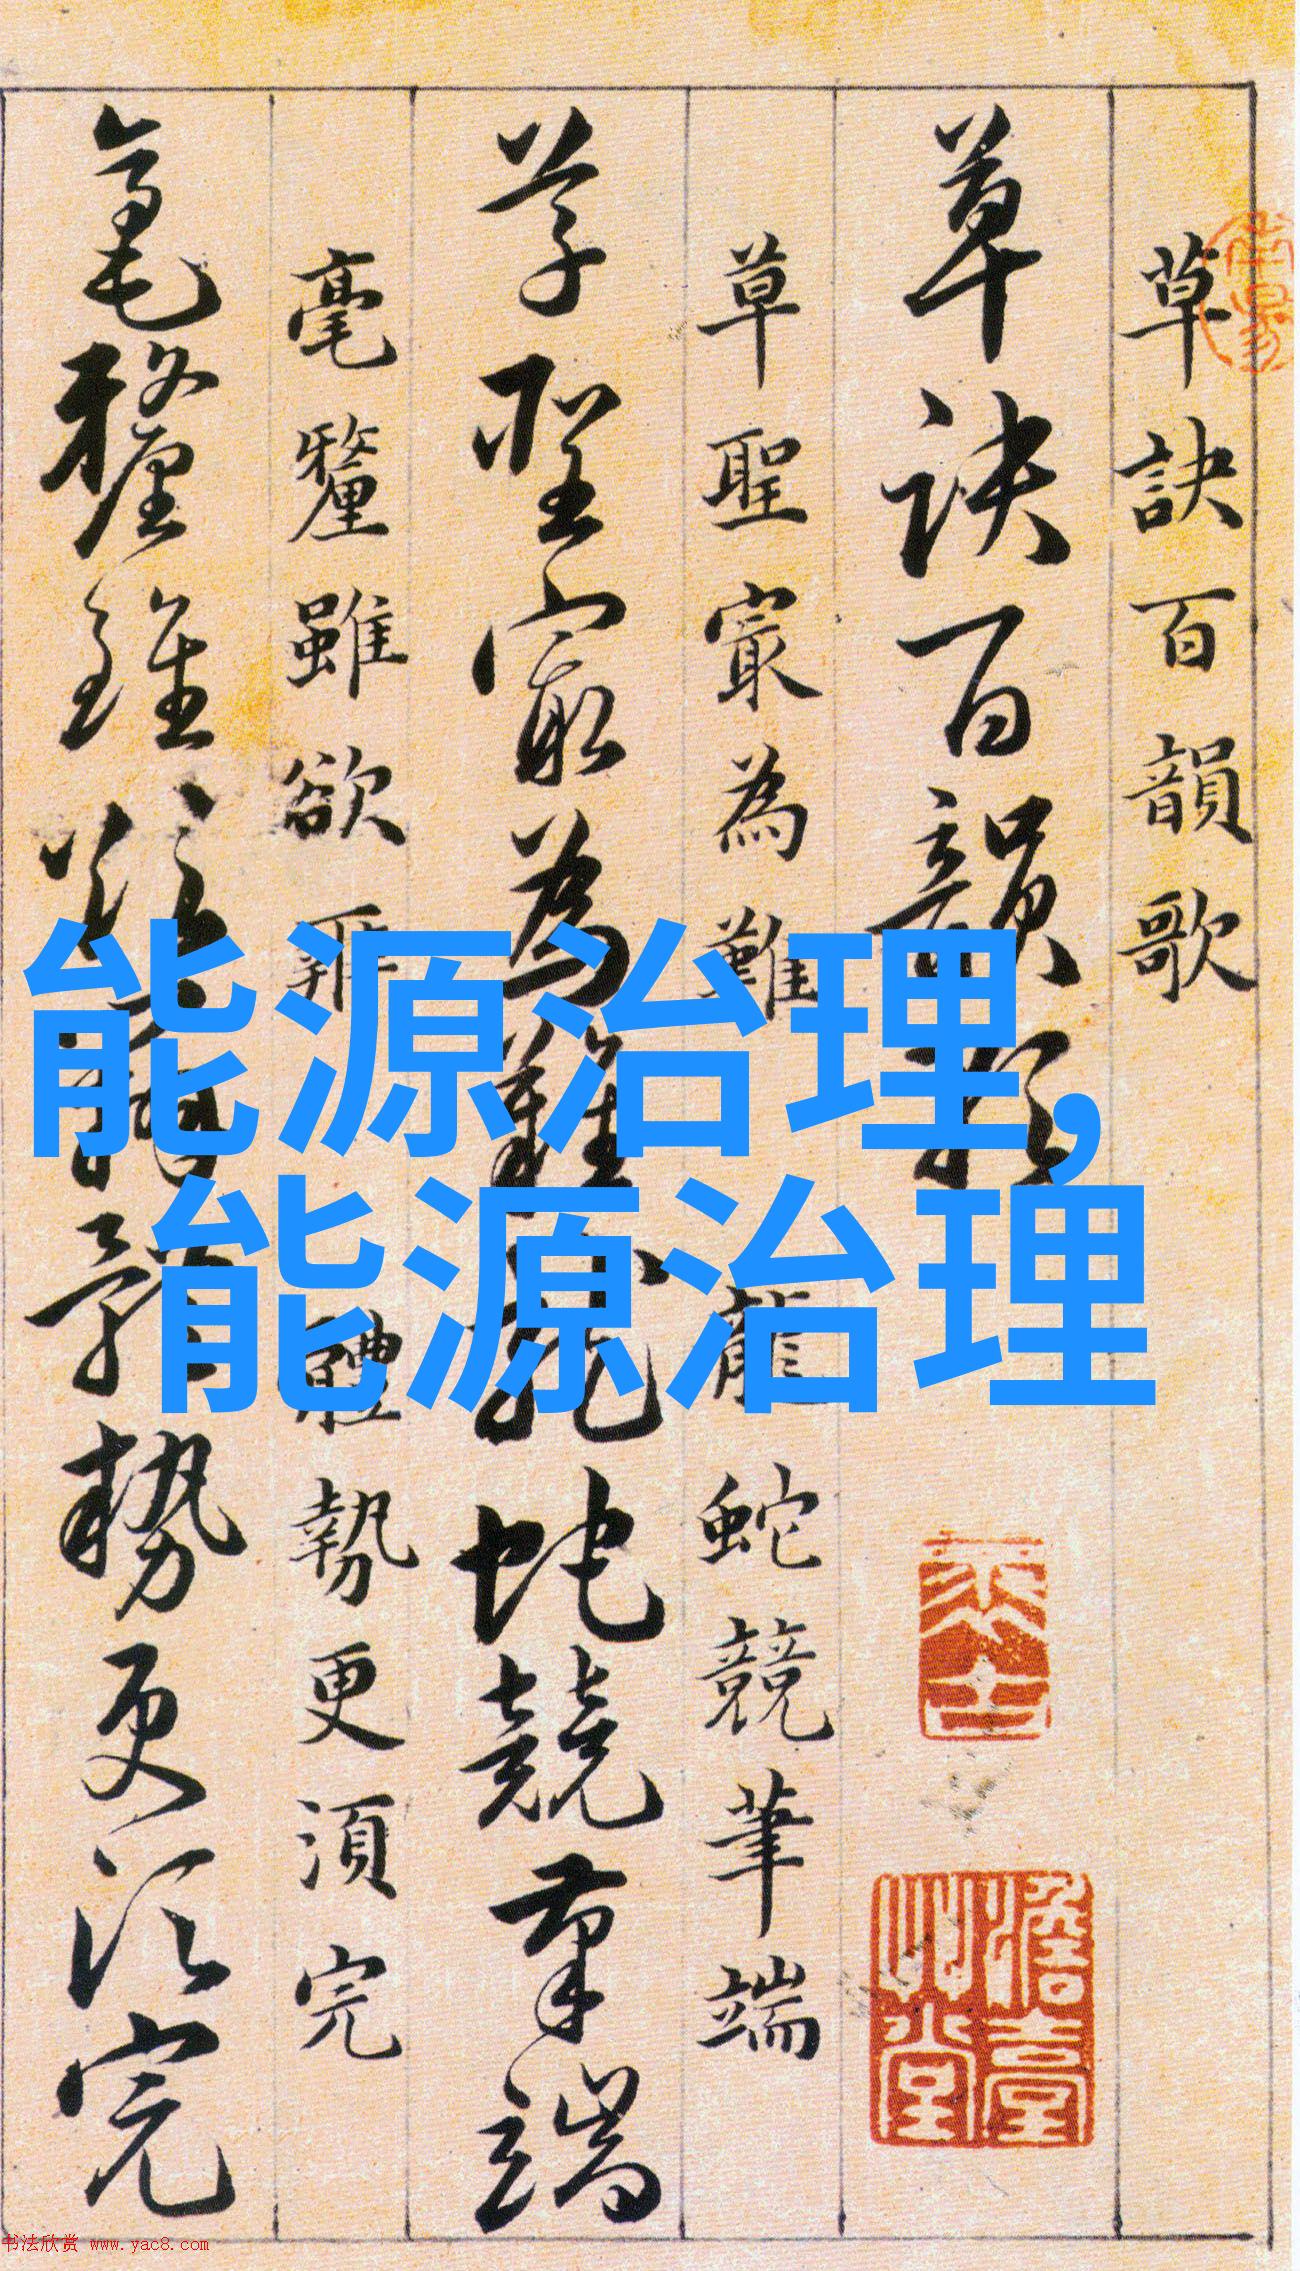 草訣百韻歌
草訣百韻歌
草聖寂為難龍蛇競筆端
草聖寂為難龍蛇競筆端
毫釐雖欲辨體勢更須完
毫釐雖欲辨體勢更須完
能源治理,
能源治理
书法欣赏 www.yac8.com